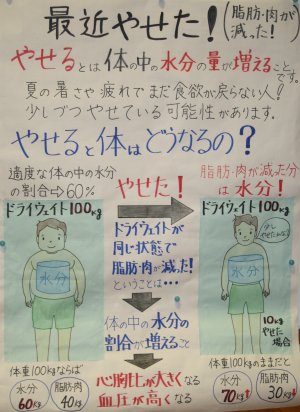 最近やせた!(脂肪・肉が減った!)
やせるとは体の中の水分の量が増えることです。
夏の暑さや疲れでまだ食欲が戻らない人!
少しづつやせている可能性があります。
やせると体はどうなるの?
適度な体の中の水分の割合⇨60%
やせた!
脂肪・肉が減った分は水分!
ドライウェイト100kg
水分
ドライウェイトが
同じ状態で
脂肪・肉が減った!
ということは…
体の中の水分の
割合が増えること
ドライウェイト100kg
少しやせたかな?
水分
10kg
やせた
場合
体重100kgならば
水分 60kg
脂肪・肉 40kg
心胸比が大きくなる
血圧が高くなる
体重100kgのままだと
水分 70kg↑
脂肪・肉 30kg↓